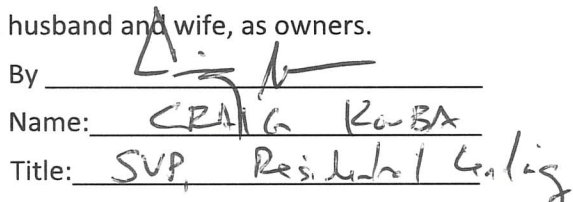 husband and wife, as owners.
By
Name: CRAIG KouBA
Title: SVP, Residential Lending